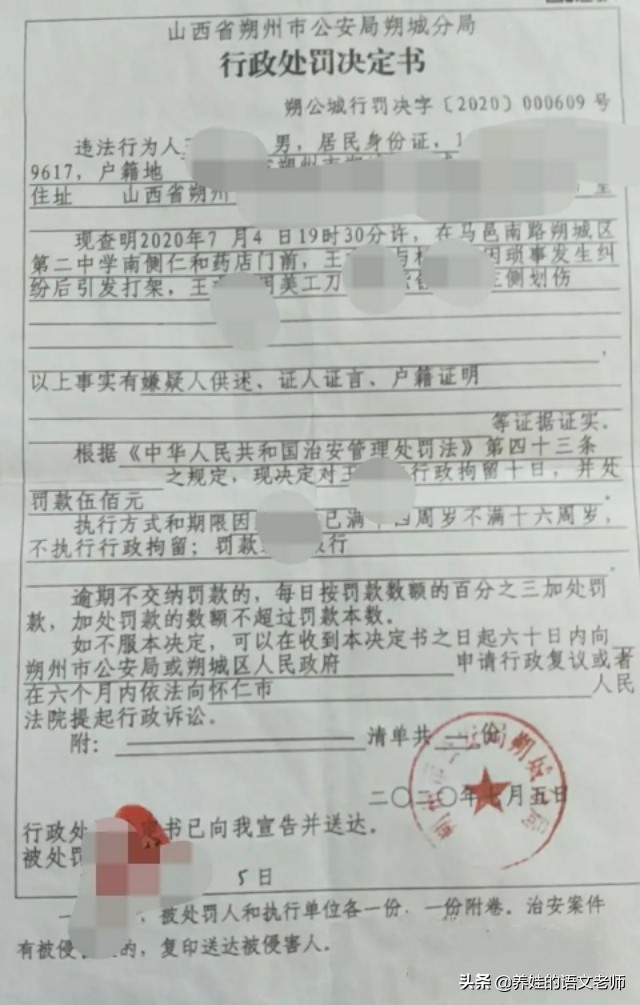 山西省朔州市公安局朔城分局
行政处罚决定书
朔公城行罚决字〔2020〕000609号
违法行为人王 男,居民身份证,1
9617,户籍地 朔州市朔
住址 山西省朔州
现查明2020年7月4日19时30分许,在马邑南路朔城区
第二中学南侧仁和药店门前,王 因琐事发生纠
纷后引发打架,王 用美工刀 侧划伤
,
以上事实有嫌疑人供述、证人证言、户籍证明
等证据证实。
根据《中华人民共和国治安管理处罚法》第四十三条
之规定,现决定对王 行政拘留十日,并处
罚款伍佰元 。
执行方式和期限因 已满十四周岁不满十六周岁,
不执行行政拘留;罚款 银行
。
逾期不交纳罚款的,每日按罚款数额的百分之三加处罚
款,加处罚款的数额不超过罚款本数。
如不服本决定,可以在收到本决定书之日起六十日内向
朔州市公安局或朔城区人民政府 申请行政复议或者
在六个月内依法向怀仁市 人民
法院提起行政诉讼。
附: 清单共 份
二〇二〇年七月五日
行政处 定书已向我宣告并送达。
被处罚
5日
一 ,被处罚人和执行单位各一份,一份附卷。治安案件
有被侵 的,复印送达被侵害人。
头条 @养娃的语文老师